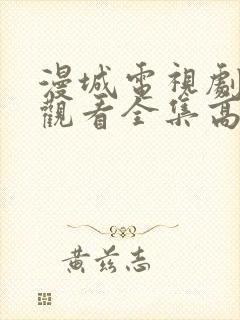 漫城電視劇
觀看全集高
黃茲志